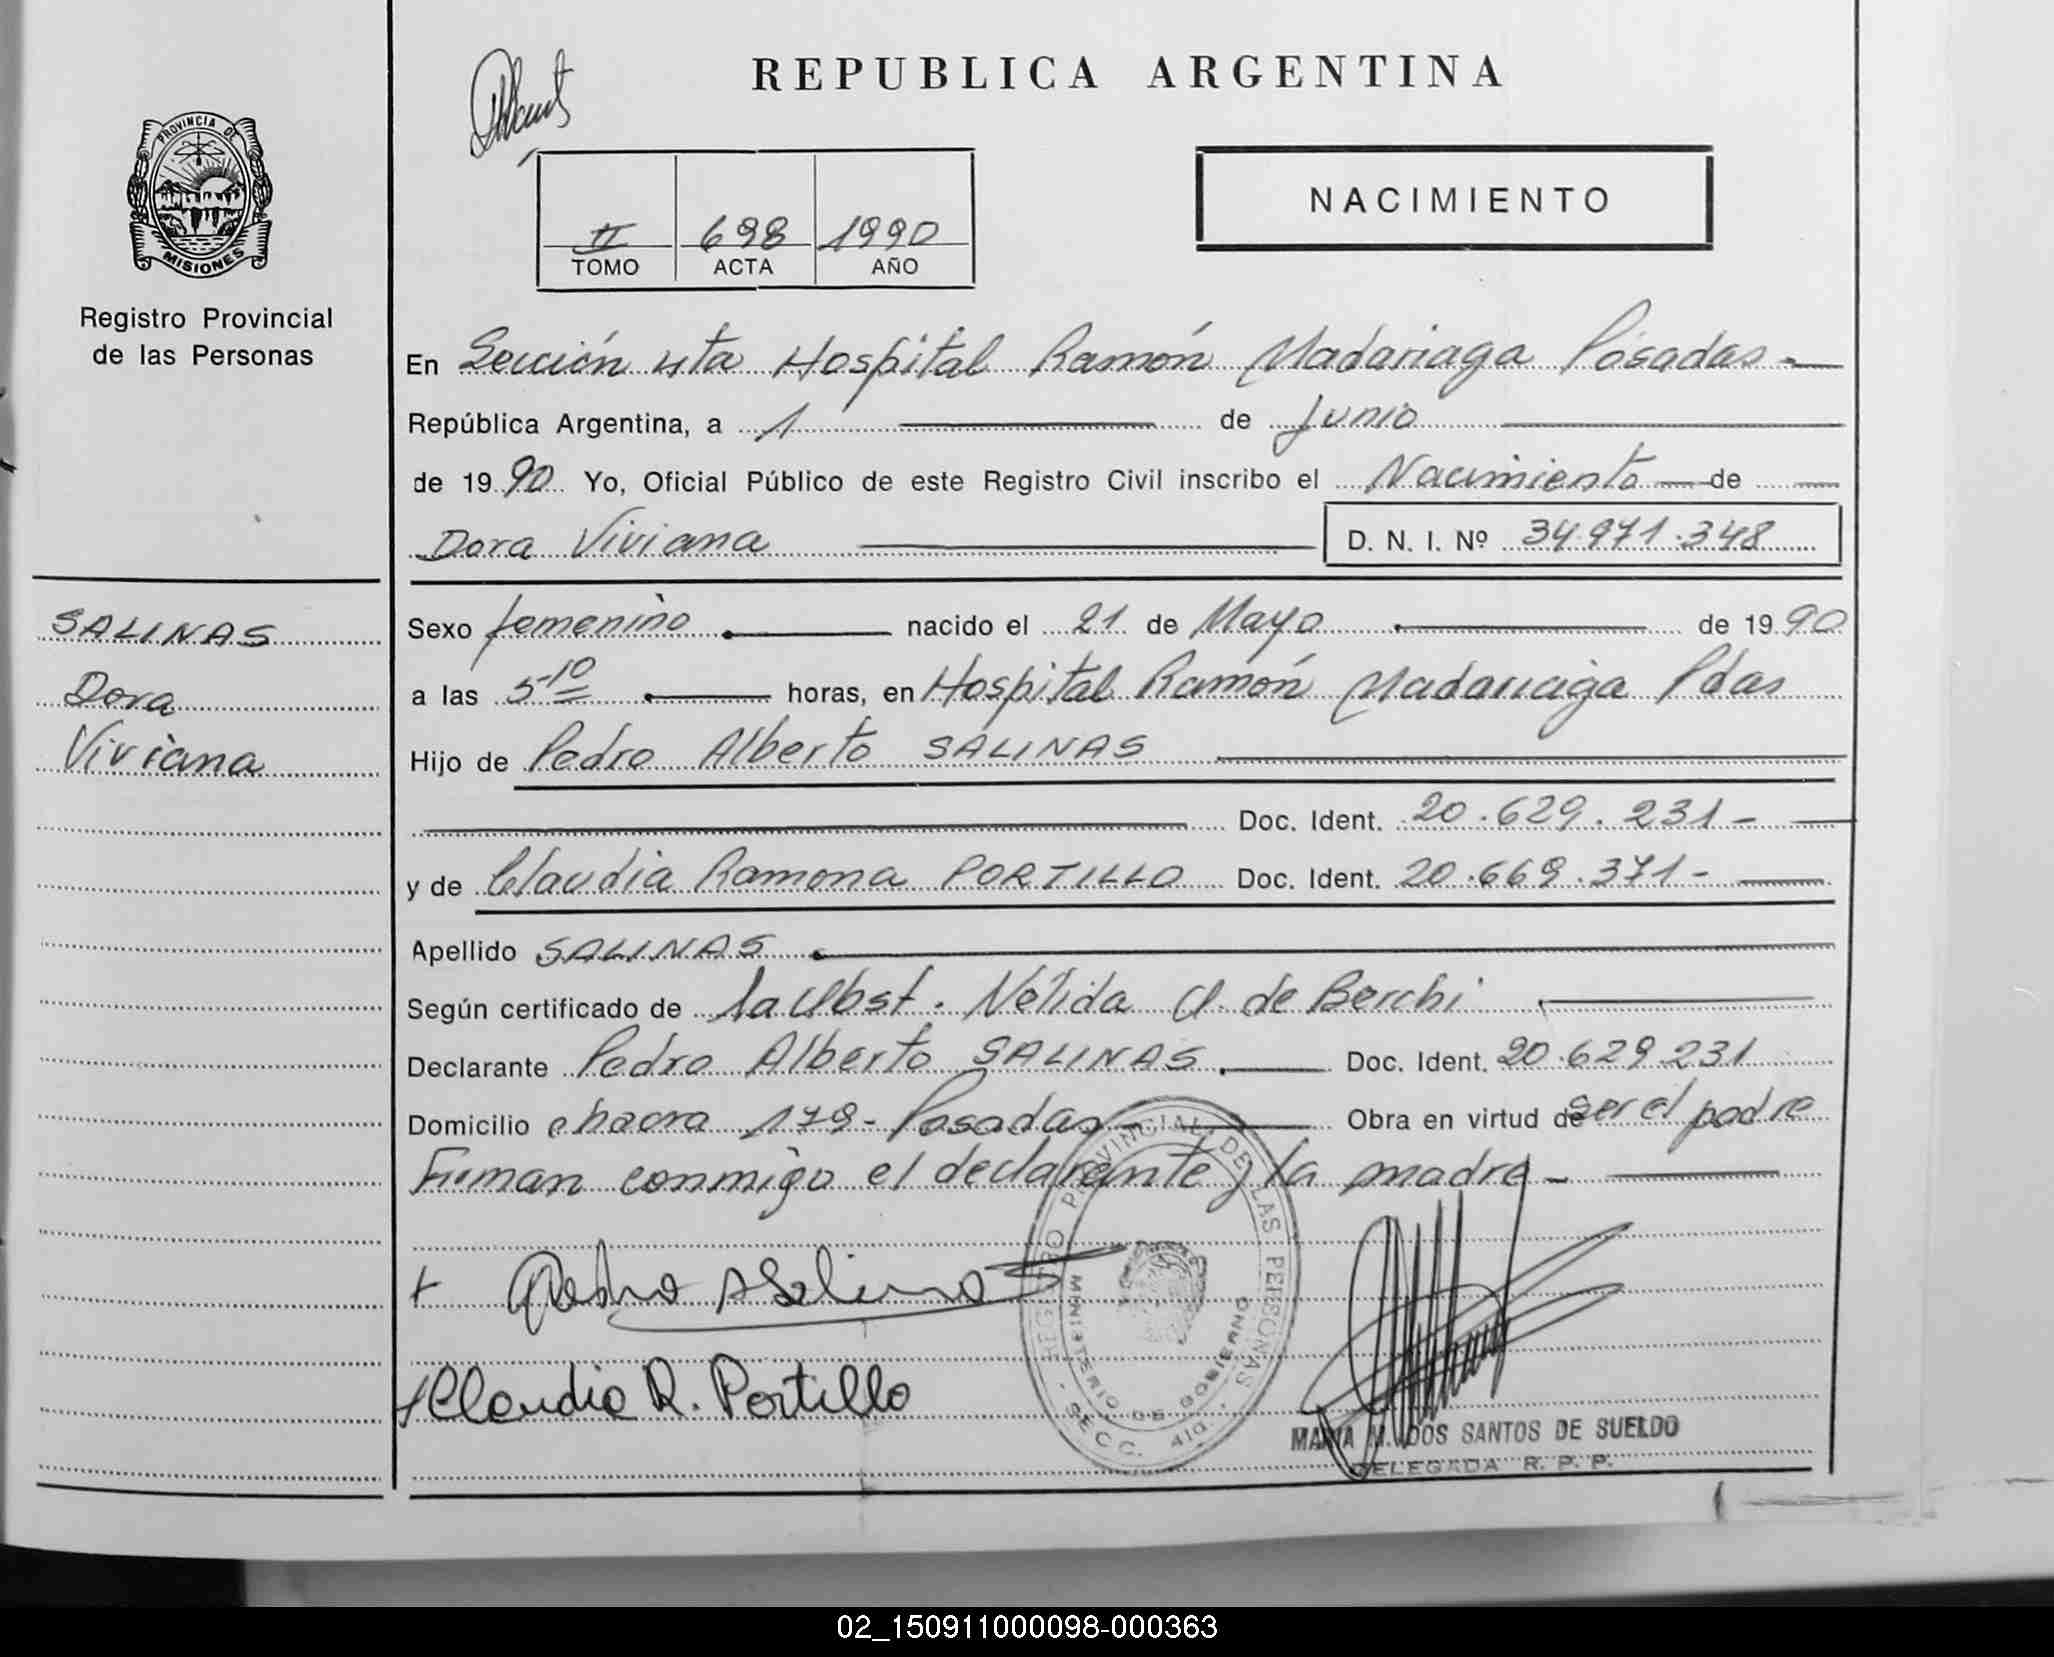 REPUBLICA ARGENTINA
PROVINCIA DE
MISIONES
Registro Provincial
de las Personas
II 698 1990
TOMO ACTA AÑO
NACIMIENTO
En Sección 4ta Hospital Ramón Madariaga Posadas -
República Argentina, a 1 de Junio
de 1990 Yo, Oficial Público de este Registro Civil inscribo el Nacimiento de
Dora Viviana D. N. I. Nº 34.971.348
SALINAS
Dora
Viviana
Sexo femenino nacido el 21 de Mayo de 1990
a las 5-10 horas, en Hospital Ramón Madariaga Pdas
Hijo de Pedro Alberto SALINAS
Doc. Ident. 20.629.231-
y de Claudia Ramona PORTILLO Doc. Ident. 20.669.371-
Apellido SALINAS
Según certificado de la Obst. Nélida A. de Berchi
Declarante Pedro Alberto SALINAS. Doc. Ident. 20.629.231
Domicilio chacra 179- Posadas Obra en virtud de ser el padre
Firman conmigo el declarante y la madre -
Pedro A Salinas
Claudia R. Portillo
REGISTRO PROVINCIAL DE LAS PERSONAS
MINISTERIO DE GOBIERNO
SECC. 4ta.
MARIA M. DOS SANTOS DE SUELDO
DELEGADA R. P. P.
02_150911000098-000363